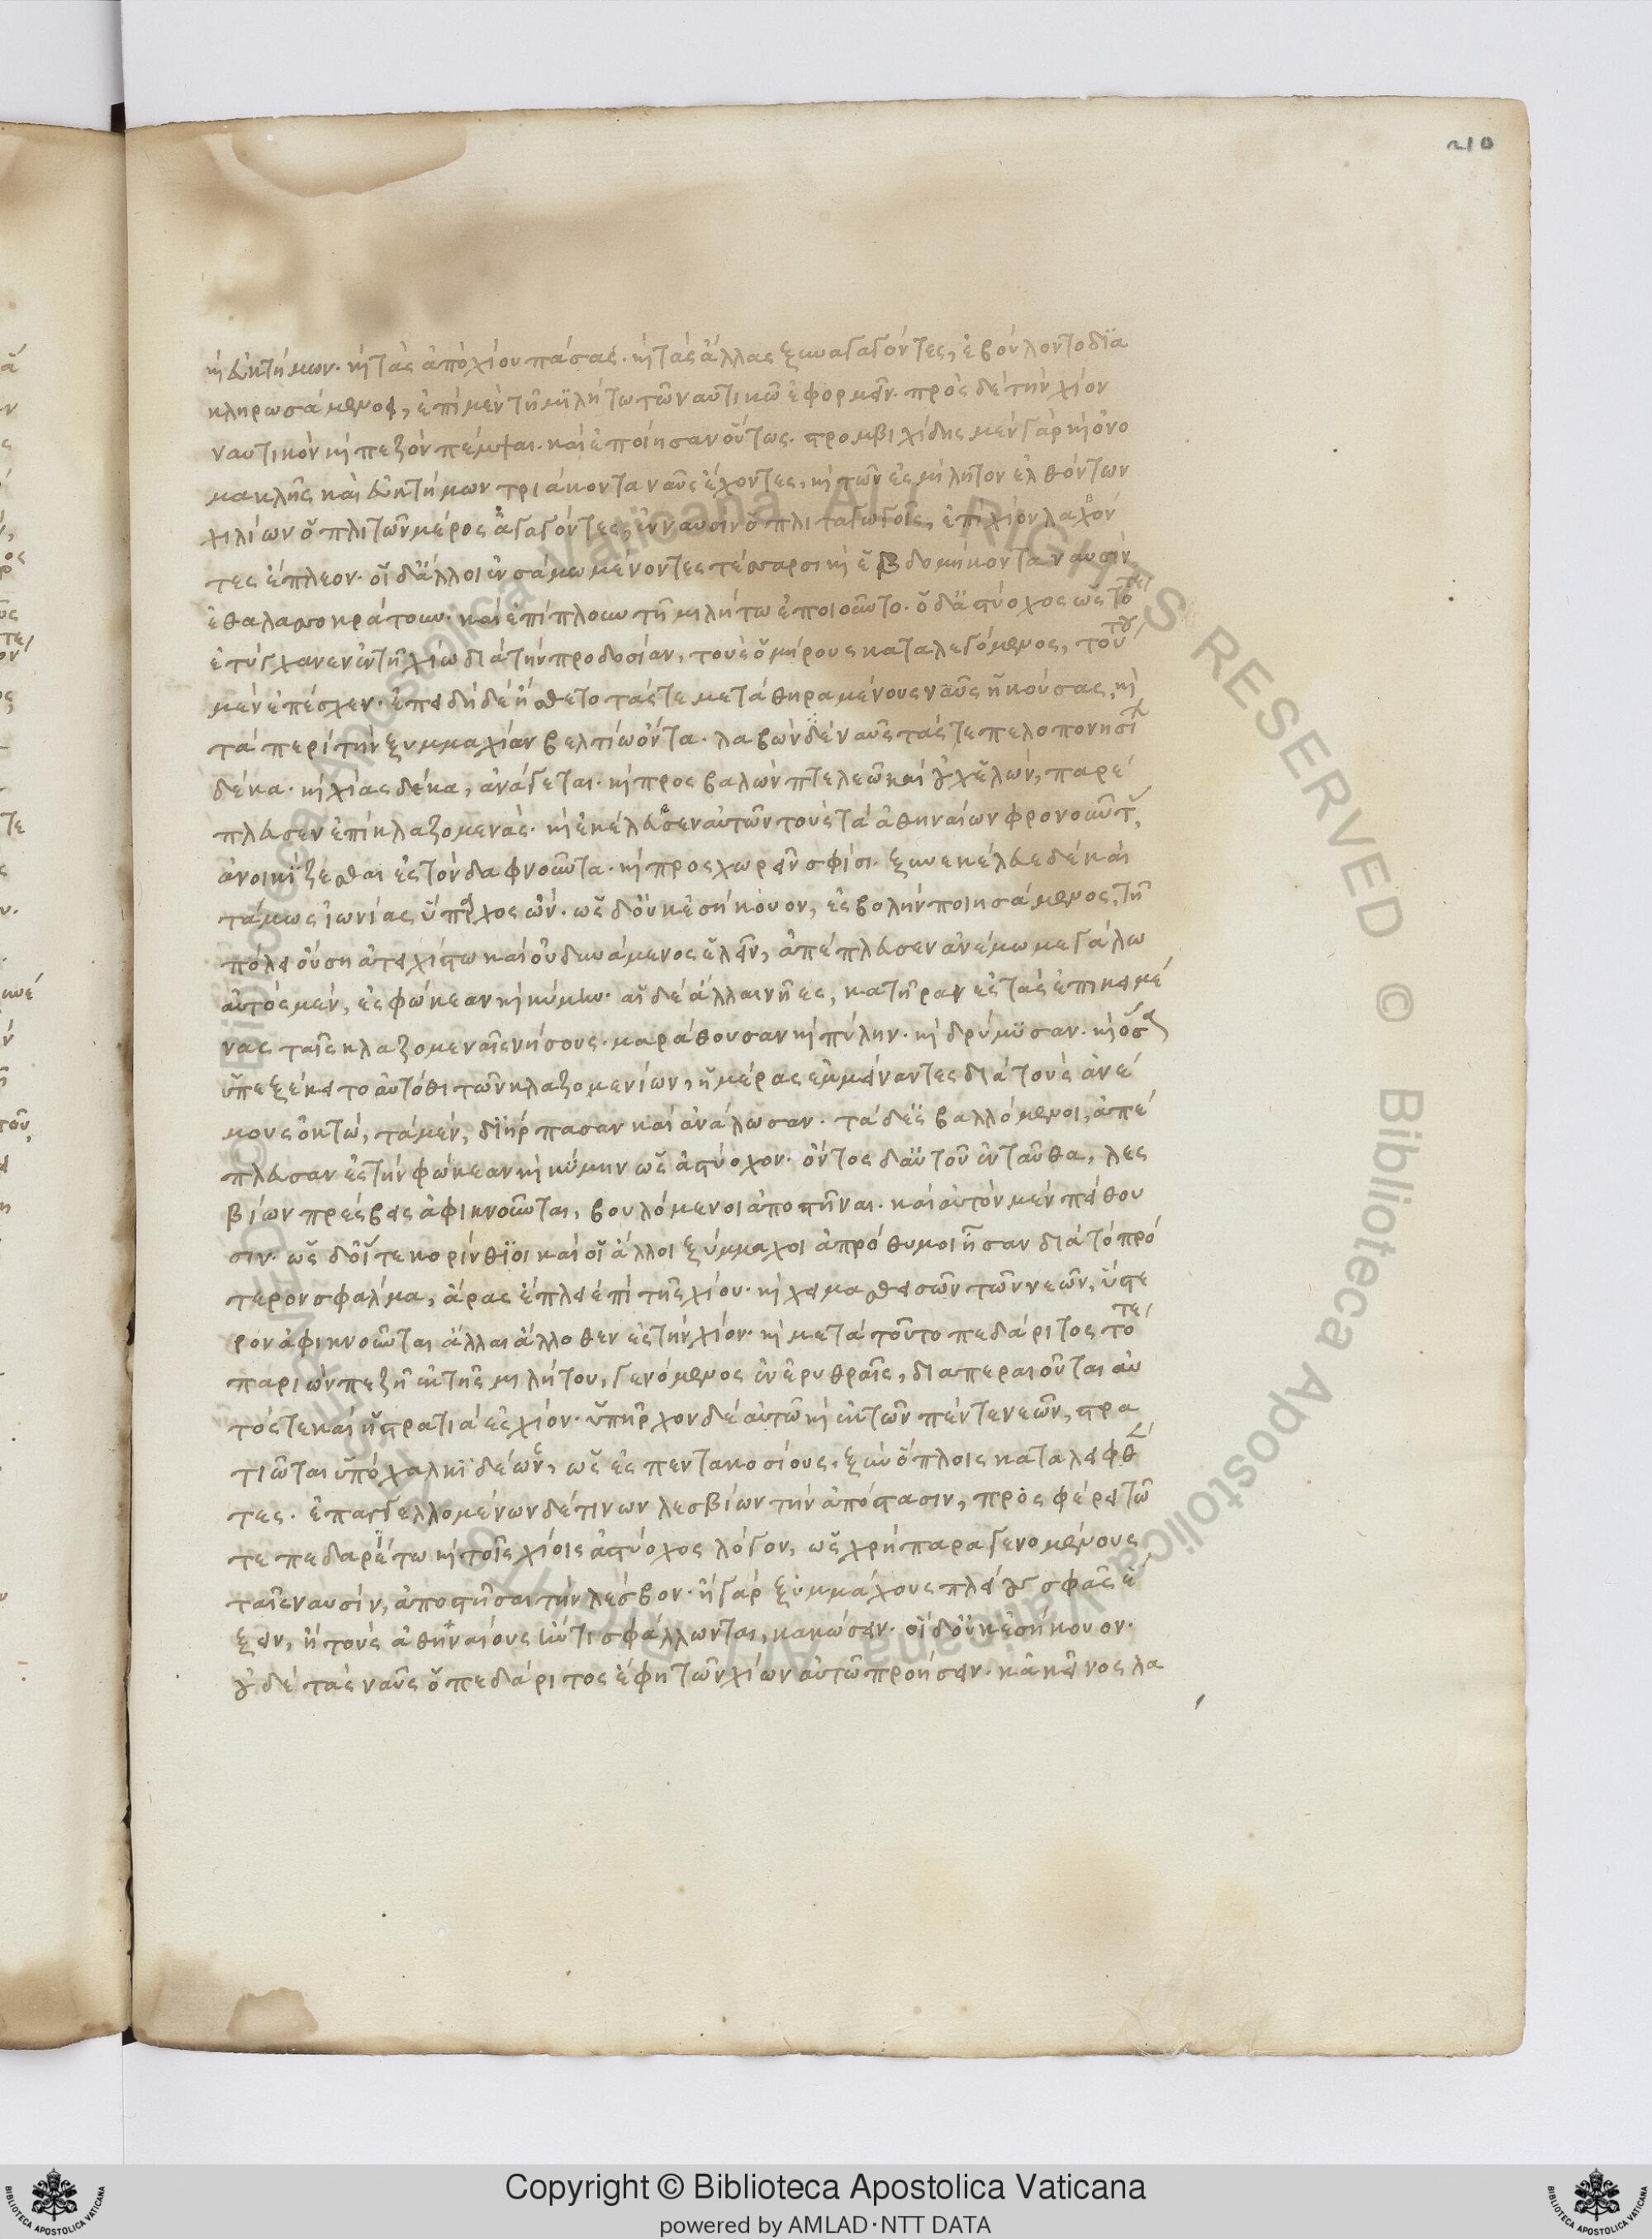 210
καὶ εὐκτήμων· καὶ τὰς ἀπὸ χίου πάσας· καὶ τὰς ἄλλας ξυναγαγόντες, ἐβούλοντο δια
κληρωσάμενοι, ἐπὶ μὲν τῇ μιλήτω τῶ ναυτικῶ ἐφορμεῖν· πρὸς δὲ τὴν χίον
ναυτικὸν καὶ πεζὸν πέμψαι· καὶ ἐποίησαν οὕτως· στρομβιχίδης μὲν γὰρ καὶ ὀνο
μακλῆς καὶ εὐκτήμων τριάκοντα ναῦς ἔχοντες, καὶ τῶν ἐς μίλητον ἐλθόντων
χιλίων ὁπλιτῶν μέρος ἀγαγόντες, ἐν ναυσὶν ὁπλιταγωγοῖς, ἐπὶ χίον λαχόν
τες ἔπλεον· οἱ δ' ἄλλοι ἐν σάμω μένοντες τέσσαρσι καὶ ἑβδομήκοντα ναυσὶν
ἐθαλασσοκράτουν· καὶ ἐπίπλουν τῇ μιλήτω ἐποιοῦντο· ὁ δ' ἀστύοχος ὡς τότε
ἐτύγχανεν ἐν τῇ χίω διὰ τὴν προδοσίαν, τοὺς ὁμήρους καταλεγόμενος, τούτου
μὲν ἐπέσχεν· ἐπειδὴ δὲ ἤσθετο τάς τε μετὰ θηραμένους ναῦς ἡκούσας, καὶ
τὰ περὶ τὴν ξυμμαχίαν βελτίω ὄντα· λαβὼν δὲ ναῦς τάς τε πελοπονησί
δέκα· καὶ χίας δέκα, ἀνάγεται· καὶ προσβαλὼν πτελεῶ καὶ οὐχ ἑλών, παρέ
πλευσεν ἐπὶ κλαζομενάς· καὶ ἐκέλευσεν αὐτῶν τοὺς τὰ ἀθηναίων φρονοῦντ
ἀνοικίζεσθαι ἐς τὸν δαφνοῦντα· καὶ προσχωρεῖν σφίσι· ξυνεκέλευε δὲ καὶ
τάμως ἰωνίας ὕπαρχος ὤν· ὡς δ' οὐκ ἐσήκουον, ἐσβολὴν ποιησάμενος, τῇ
πόλει οὔση ἀτειχίστω καὶ οὐ δυνάμενος ἑλεῖν, ἀπέπλευσεν ἀνέμω μεγάλω
αὐτὸς μέν, ἐς φώκεαν καὶ κύμην· αἱ δὲ ἄλλαι νῆες, κατῆραν ἐς τὰς ἐπικειμέ
νας ταῖς κλαζομεναῖς νήσους· μαράθουσαν καὶ πύλην· καὶ δρύμυσαν· καὶ ὅσα
ὑπεξέκειτο αὐτόθι τῶν κλαζομενίων, ἡμέρας ἐμμείναντες διὰ τοὺς ἀνέ
μους ὀκτώ, τὰ μέν, διήρπασαν καὶ ἀνάλωσαν· τὰ δὲ ἐσβαλλόμενοι, ἀπέ
πλευσαν ἐς τὴν φώκεαν καὶ κύμην ὡς ἀστύοχον· ὄντος δ' αὐτοῦ ἐνταῦθα, λεσ
βίων πρέσβεις ἀφικνοῦνται, βουλόμενοι ἀποστῆναι· καὶ αὐτὸν μὲν πείθου
σιν· ὡς δ' οἵ τε κορίνθιοι καὶ οἱ ἄλλοι ξύμμαχοι ἀπρόθυμοι ἦσαν διὰ τὸ πρό
τερον σφάλμα, ἄρας ἔπλει ἐπὶ τῆς χίου· καὶ χειμασθεισῶν τῶν νεῶν, ὕστε
ρον ἀφικνοῦνται ἄλλαι ἄλλοθεν ἐς τὴν χίον· καὶ μετὰ τοῦτο πεδάριτος τότε
παριὼν πεζῇ ἐκ τῆς μιλήτου, γενόμενος ἐν ἐρυθραῖς, διαπεραιοῦται αὐ
τός τε καὶ ἡ στρατιὰ ἐς χίον· ὑπῆρχον δὲ αὐτῶ καὶ ἐκ τῶν πέντε νεῶν, στρα
τιῶται ὑπὸ χαλκιδέως, ὡς ἐς πεντακοσίους, ξὺν ὅπλοις καταλειφθέν
τες· ἐπαγγελλομένων δέ τινων λεσβίων τὴν ἀπόστασιν, προσφέρει τῶ
τε πεδαρίτω καὶ τοῖς χίοις ἀστύοχος λόγον, ὡς χρὴ παραγενομένους
ταῖς ναυσίν, ἀποστῆσαι τὴν λέσβον· ἢ γὰρ ξυμμάχους πλείους σφᾶς ἕ
ξειν, ἢ τοὺς ἀθηναίους ἤν τι σφάλλωνται, κακώσειν· οἱ δ' οὐκ ἐσήκουον·
οὐδὲ τὰς ναῦς ὁ πεδάριτος ἔφη τῶν χίων αὐτῶ προήσειν· κἀκεῖνος λα
Copyright © Biblioteca Apostolica Vaticana
powered by AMLAD·NTT DATA